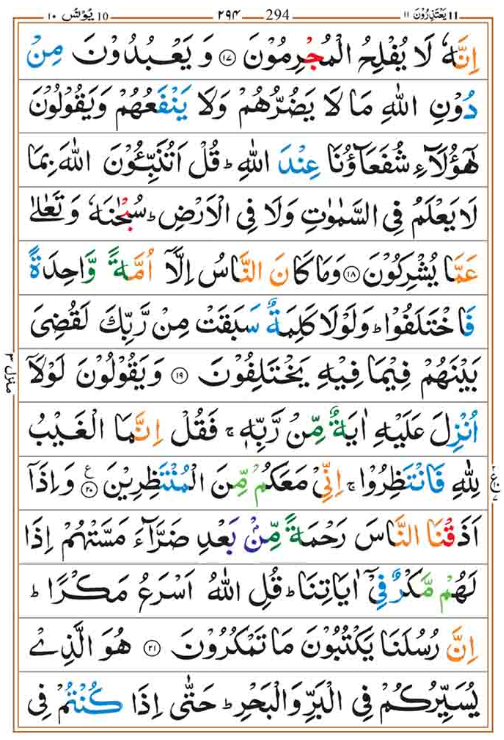 یَعْتَذِرُوْنَ ۱۱ 11 294 ۲۹۴ یُوْنُس 10 ۱۰
اِنَّهٗ لَا یُفْلِحُ الْمُجْرِمُوْنَ ﴿۱۷﴾ وَ یَعْبُدُوْنَ مِنْ
دُوْنِ اللّٰهِ مَا لَا یَضُرُّهُمْ وَلَا یَنْفَعُهُمْ وَیَقُوْلُوْنَ
هٰۤؤُلَآءِ شُفَعَآؤُنَا عِنْدَ اللّٰهِ ؕ قُلْ اَتُنَبِّـُٔوْنَ اللّٰهَ بِمَا
لَا یَعْلَمُ فِی السَّمٰوٰتِ وَلَا فِی الْاَرْضِ ؕ سُبْحٰنَهٗ وَتَعٰلٰی
عَمَّا یُشْرِكُوْنَ ﴿۱۸﴾ وَمَا كَانَ النَّاسُ اِلَّاۤ اُمَّةً وَّاحِدَةً
فَاخْتَلَفُوْا ؕ وَلَوْلَا كَلِمَةٌ سَبَقَتْ مِنْ رَّبِّكَ لَقُضِیَ
بَیْنَهُمْ فِیْمَا فِیْهِ یَخْتَلِفُوْنَ ﴿۱۹﴾ وَیَقُوْلُوْنَ لَوْلَاۤ
منزل ۳
اُنْزِلَ عَلَیْهِ اٰیَةٌ مِّنْ رَّبِّهٖ ۚ فَقُلْ اِنَّمَا الْغَیْبُ
لِلّٰهِ فَانْتَظِرُوْا ۚ اِنِّیْ مَعَكُمْ مِّنَ الْمُنْتَظِرِیْنَ ﴿۲۰﴾ ع وَاِذَاۤ
اَذَقْنَا النَّاسَ رَحْمَةً مِّنْۢ بَعْدِ ضَرَّآءَ مَسَّتْهُمْ اِذَا
لَهُمْ مَّكْرٌ فِیْۤ اٰیَاتِنَا ؕ قُلِ اللّٰهُ اَسْرَعُ مَكْرًا ؕ
اِنَّ رُسُلَنَا یَكْتُبُوْنَ مَا تَمْكُرُوْنَ ﴿۲۱﴾ هُوَ الَّذِیْ
یُسَیِّرُكُمْ فِی الْبَرِّ وَالْبَحْرِ ؕ حَتّٰۤی اِذَا كُنْتُمْ فِی